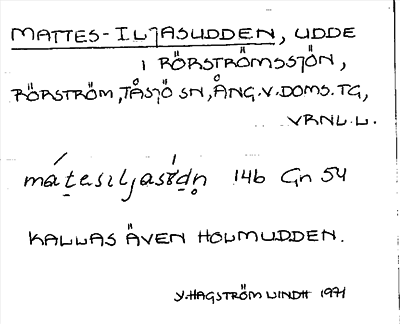 MATTES-ILJASUDDEN, UDDE
I RÖRSTRÖMSSJÖN,
RÖRSTRÖM, TÅSJÖ SN, ÅNG. V. DOMS. TG,
VRNL. L.
14b Gn 54
KALLAS ÄVEN HOLMUDDEN.
Y. HAGSTRÖM LINDH 1971